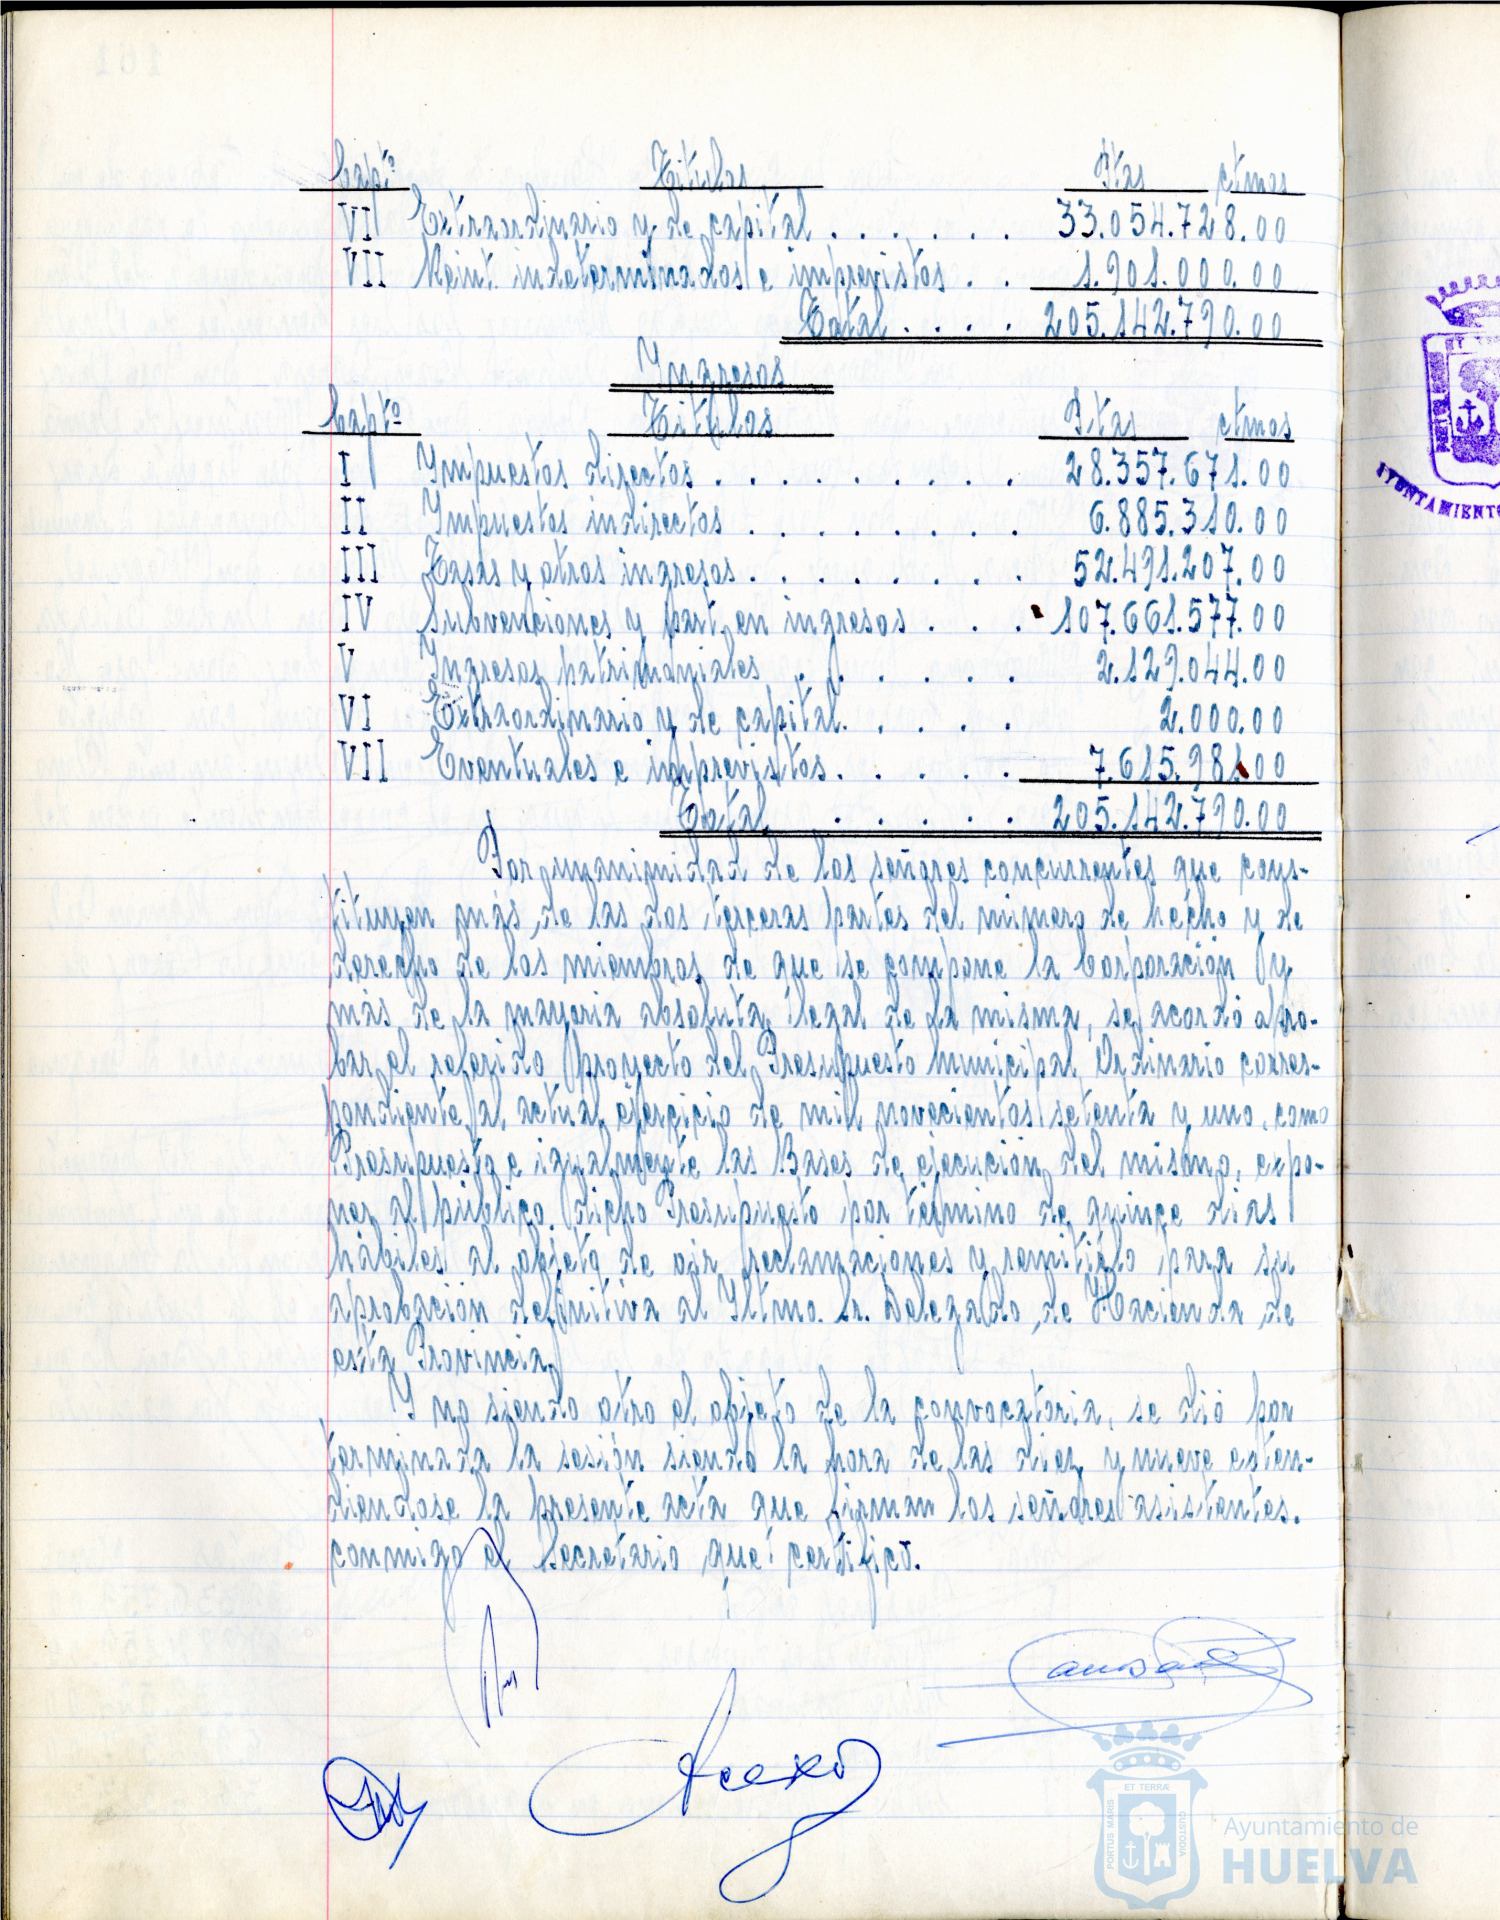 Capt.º Titulos Ptas ctmos
VI Extraordinario y de capital . . . . . . 33.054.728.00
VII Reint. indeterminados e imprevistos . . 1.901.000.00
Total . . . . 205.142.790.00
Ingresos
Captº Titulos Ptas ctmos
I Impuestos directos . . . . . . . . . 28.357.671.00
II Impuestos indirectos . . . . . . . . 6.885.310.00
III Tasas y otros ingresos . . . . . . . . 52.491.207.00
IV Subvenciones y part. en ingresos . . . 107.661.577.00
V Ingresos patrimoniales . . . . . . 2.129.044.00
VI Extraordinario y de capital. . . . . 2.000.00
VII Eventuales e imprevistos. . . . . 7.615.981.00
Total . . . . . 205.142.790.00
Por unanimidad de los señores concurrentes que cons-
tituyen más de las dos terceras partes del número de hecho y de
derecho de los miembros de que se compone la Corporación y
más de la mayoria absoluta legal de la misma, se acordó apro-
bar el referido proyecto del Presupuesto Municipal Ordinario corres-
pondiente al actual ejercicio de mil novecientos setenta y uno, como
Presupuesto e igualmente las Bases de ejecución del mismo, expo-
ner al público dicho Presupuesto por término de quince dias
hábiles al objeto de oir reclamaciones y remitirlo para su
aprobación definitiva al Iltmo. Sr. Delegado de Hacienda de
esta Provincia.
Y no siendo otro el objeto de la convocatoria, se dió por
terminada la sesión siendo la hora de las diez y nueve exten-
diendose la presente acta que firman los señores asistentes.
conmigo el Secretario que certifico.
ET TERRÆ
PORTUS MARIS
CUSTODIA
Ayuntamiento de
HUELVA
AYUNTAMIENTO